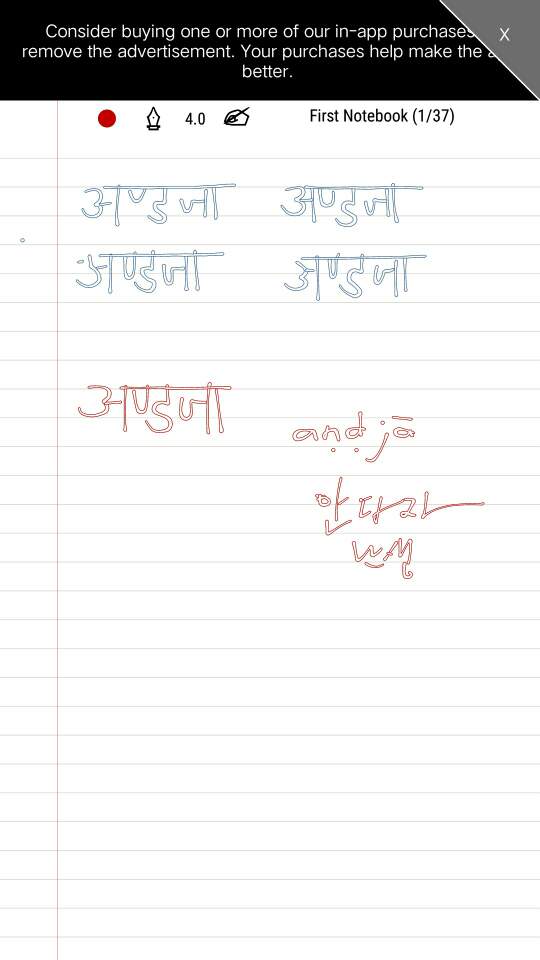 Consider buying one or more of our in-app purchases
remove the advertisement. Your purchases help make the
better.
X
4.0 First Notebook (1/37)
अण्डजा अण्डजा
अण्डजा अण्डजा
अण्डजा
aṇḍjā
안다자